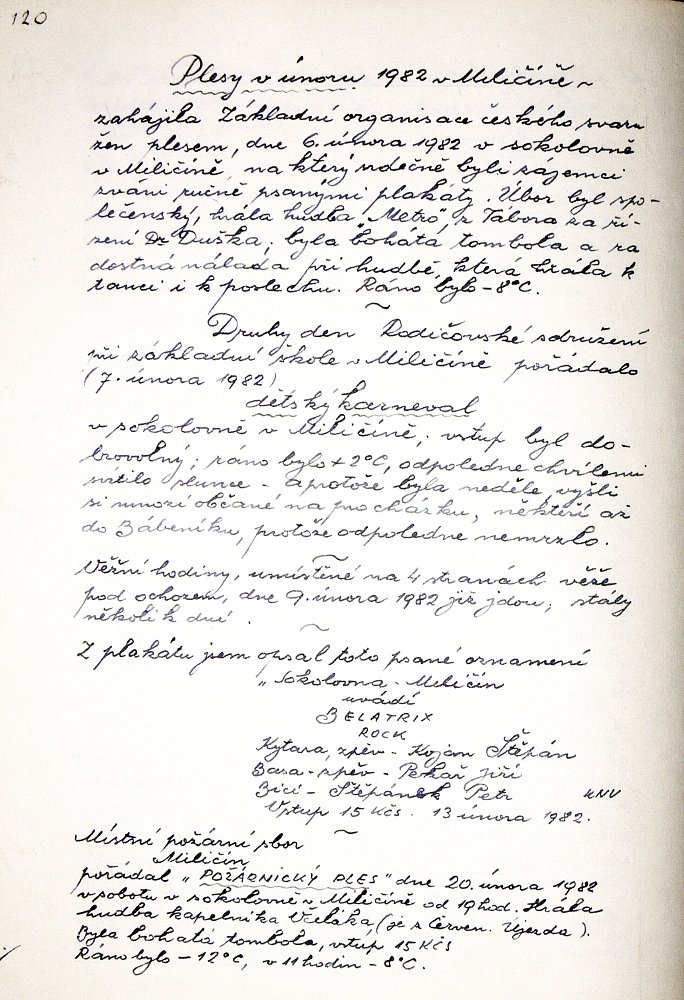 120
Plesy v únoru 1982 v Miličíně ~
zahájila Základní organisace českého svazu
žen plesem, dne 6. února 1982 v sokolovně
v Miličíně, na který srdečně byli zájemci
zváni ručně psanými plakáty. Úbor byl spo-
lečenský, hrála hudba "Metro" z Tábora za ří-
zení Dr Duška; byla bohátá tombola a ra
dostná nálada při hudbě, která hrála k
tanci i k poslechu. Ráno bylo -8°C.
~
Druhý den Rodičovské sdružení
při základní škole v Miličíně pořádalo
(7. února 1982)
dětský karneval
v sokolovně v Miličíně; vstup byl do-
brovolný; ráno bylo +2°C, odpoledne chvílemi
svítilo slunce - a protože byla neděle, vyšli
si mnozí občané na procházku, někteří až
do Zábeníku, protože odpoledne nemrzlo.
~
Věžní hodiny, umístěné na 4 stranách věže
pod ochozem, dne 9. února 1982 již jdou; stály
několik dní.
~
Z plakátu jsem opsal toto psané oznamení
"Sokolovna - Miličín
uvádí
BELATRIX
ROCK
Kytara, zpěv - Kojan Štěpán
Basa - zpěv - Pekař Jiří
Bicí - Štěpánek Petr KNV
Vstup 15 Kčs. 13 února 1982.
~
Místní požární sbor
Miličín
pořádal "POŽÁRNICKÝ PLES" dne 20. února 1982
v sobotu v sokolovně v Miličíně od 19 hod. Hrála
hudba kapelníka (je z Červen. Újezda).
Byla bohatá tombola, vstup 15 Kčs
Ráno bylo -12°C, v 11 hodin -8°C.